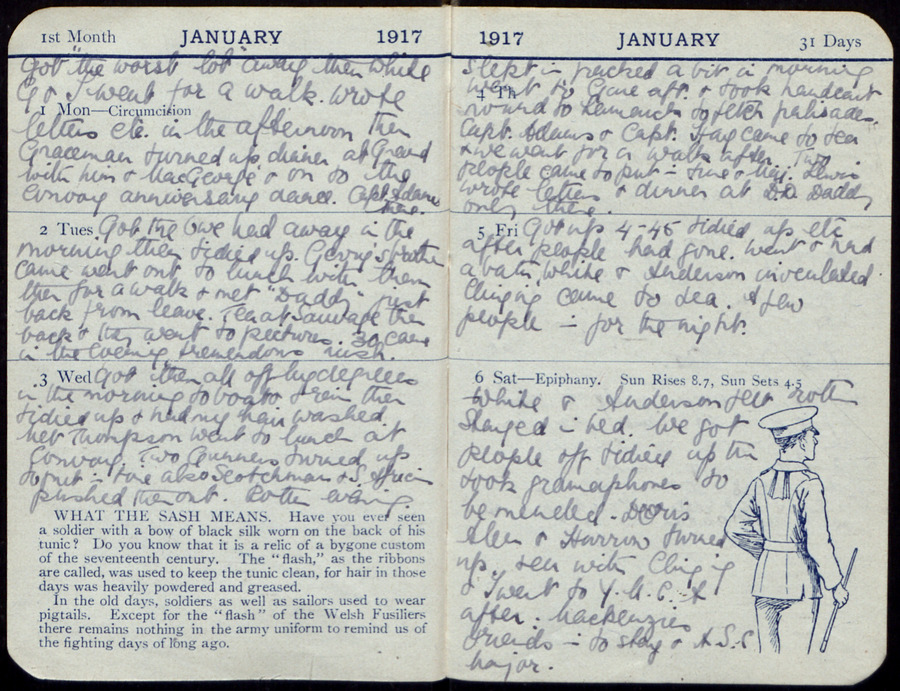 1st Month JANUARY 1917
Got "the worst lot" away then White
& I went for a walk. wrote
1 Mon—Circumcision
letters etc. in the afternoon then
Graceman turned up dinner at Grand
with him & MacGeorge & on to the
Convoy anniversary dance. Capt. Adams
there.
2 Tues Got the we had away in the
morning then tidied up. Georgi
came went out to lunch with them
then for a walk & met "Daddy" just
back from leave. Tea at Sauvage then
back & went to pictures. 30 came
in the evening tremendous rush.
3 Wed Got them all off by degrees
in the morning to boats & train then
tidied up & had my hair washed.
met Thompson went to lunch at
Convoy. Two Gunners turned up
to put in also Scotchman & S. African
pushed them out. Rotten evening.
WHAT THE SASH MEANS. Have you ever seen
a soldier with a bow of black silk worn on the back of his
tunic? Do you know that it is a relic of a bygone custom
of the seventeenth century. The "flash," as the ribbons
are called, was used to keep the tunic clean, for hair in those
days was heavily powdered and greased.
In the old days, soldiers as well as sailors used to wear
pigtails. Except for the "flash" of the Welsh Fusiliers
there remains nothing in the army uniform to remind us of
the fighting days of long ago.
1917 JANUARY 31 Days
Slept in packed a bit in morning
went to Gare aft. & took handcart
4 Th
round to to fetch palisades.
Capt. Adams & Capt. Hay came to tea
& we went for a walk after. Two
people came to put in & Maj. Lewis
wrote letters & dinner at D.D. Daddy
only there.
5 Fri Got up 4-45 tidied up etc
after people had gone. went & had
a bath White & Anderson inoculated
Clinging came to tea. A few
people in for the night.
6 Sat—Epiphany. Sun Rises 8.7, Sun Sets 4.5
White & Anderson felt rotten
stayed in bed. We got
people off tidied up then
took gramaphones to
be mended. Doris
Allen & Harrow turned
up. tea with Clinging
& I went to Y.M.C.A
after. Mackenzies
friends in to stay & A.S.C
major.